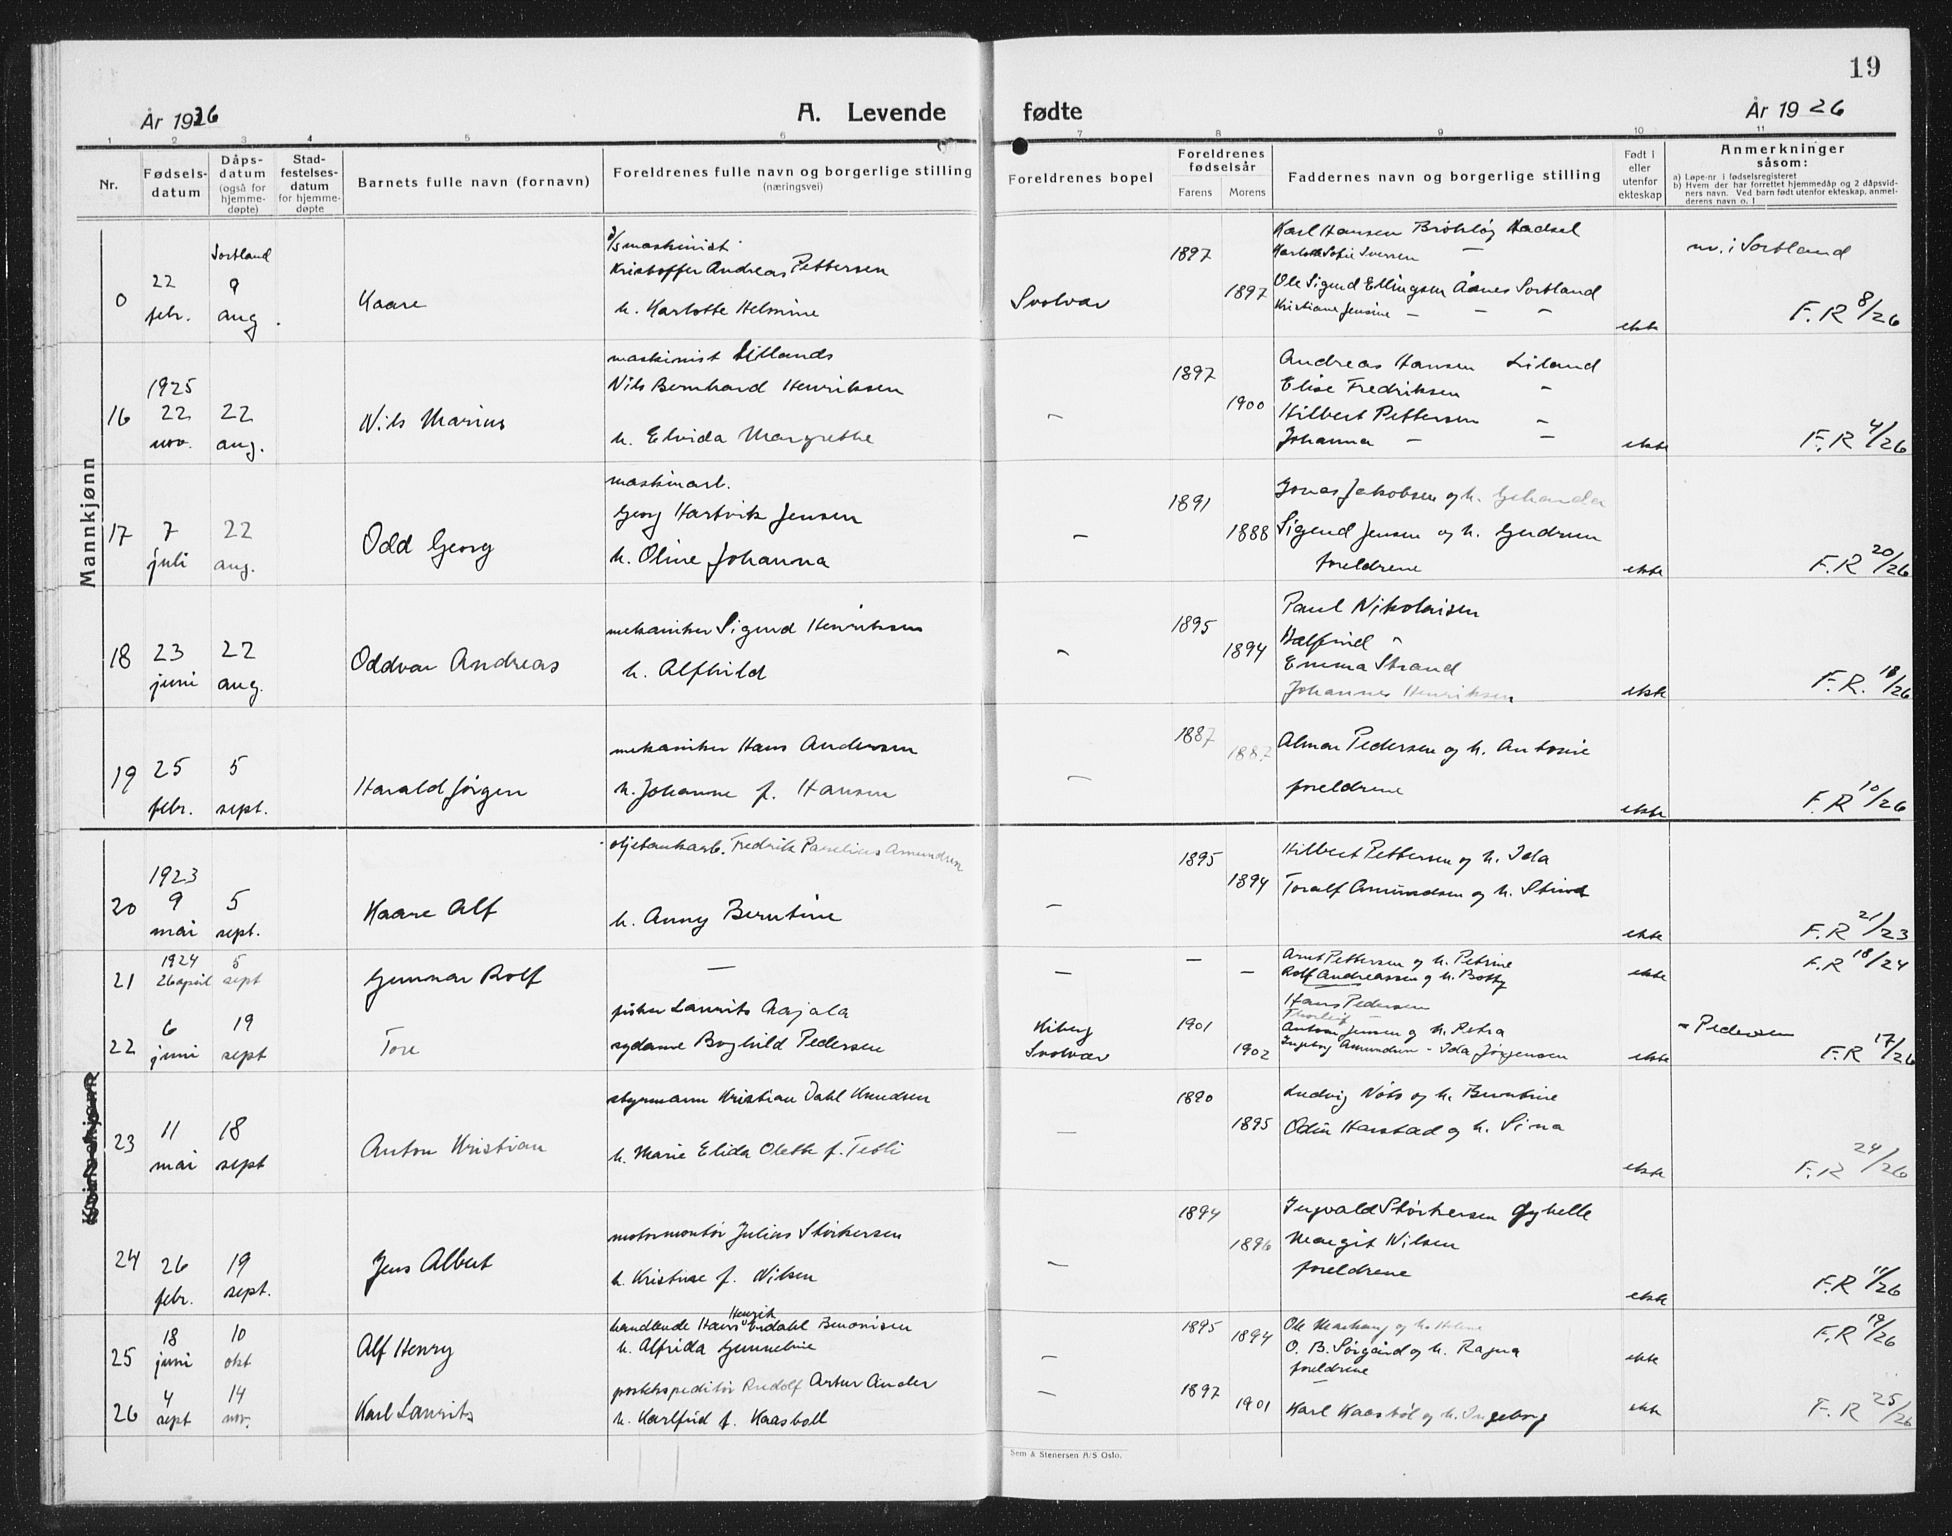 19
År 1926
A. Levende fødte
År 1926
1 2 3 4 5 6 7 8 9 10 11
Nr.
Fødsels-datum
Dåps-datum (også for hjemme-døpte)
Stad-festelses-datum for hjemme-døpte
Barnets fulle navn (fornavn)
Foreldrenes fulle navn og borgerlige stilling (næringsvei)
Foreldrenes bopel
Foreldrenes fødselsår
Farens Morens
Faddernes navn og borgerlige stilling
Født i eller utenfor ekteskap
Anmerkninger såsom:
a) Løpe-nr i fødselsregisteret
b) Hvem der har forrettet hjemmedåp og 2 dåpsvidners navn. Ved barn født utenfor ekteskap, anmelderens navn o. l
Mannkjønn
0
22 febr.
Sortland 9 aug.
Kaare
maskinist
Kristoffer Andreas Pettersen
h. Karlotte Helmine
Svolvær
1897
1897
Karl Hansen Hadsel
Karlotte Sofie Iversen —
Ole Sigurd Ellingsen Åsnes Sortland
Kristiane Jensine — — —
ekte
nr. i Sortland
F.R 8/26
16
1925 22 nov.
22 aug.
Nils Marius
maskinist
Nils Bernhard Henriksen
h. Elvida Margrethe
—
1897
1900
Andreas Hansen Liland
Elise Fredriksen —
Hilbert Pettersen —
Johanna — —
ekte
F.R 4/26
17
7 juli
22 aug.
Odd Georg
maskinarb.
Georg Hartvik Jensen
h. Oline Johanna
—
1891
1888
Jonas Jakobsen og h.
Sigurd Jensen og h. Gudrun
foreldrene
ekte
F.R 20/26
18
23 juni
22 aug.
Oddvar Andreas
mekaniker Sigurd Henriksen
h. Alfhild
—
1895
1894
Paul Nikolaisen
Halfrid —
Emma Strand
Johannes Henriksen
ekte
F.R. 18/26
19
25 febr.
5 sept.
Harald Jørgen
mekaniker Hans Andersen
h. Johanne f. Hansen
—
1887
1887
Almar Pedersen og h. Antonie
foreldrene
ekte
F.R 10/26
20
1923 9 mai
5 sept.
Kaare Alf
oljetankarb. Fredrik Parelius Amundsen
h. Anny Berntine
—
1895
1894
Hilbert Pettersen og h. Ida
Toralf Amundsen og h.
ekte
F.R 21/23
21
1924 26 april
5 sept
Gunnar Rolf
—
—
— —
Arnt Pettersen og h. Petrine
Rolf Andreassen og h. Botty
ekte
F.R 18/24
22
6 juni
19 sept
Tore
fisker Laurits Aajala
sydame Boghild Pedersen
Kiberg
Svolvær
1901
1902
Hans Pedersen
Thorleif —
Anton Jensen og h. Petra
Ingeborg Amundsen - Ida Jørgensen
ekte
Pedersen
F.R 17/26
Kvinnekjønn
23
11 mai
18 sept
Anton Kristian
styrmann Kristian Dahl Knudsen
h. Marie Elida Olette f. Tetli
—
1890
1895
Ludvig og h. Berntine
Odin Harstad og h. Sina
ekte
F.R 24/26
24
26 febr.
19 sept.
Jens Albert
motormontør Julius Størkersen
h. Kristine f. Nilsen
—
1894
1896
Ingvald Størkersen
Margit Nilsen
foreldrene
ekte
F.R 11/26
25
18 juni
10 okt
Alf Henry
handlende Hans Henrik Benonisen
h. Alfrida
—
1895
1894
Ole og h. Helene
O. B. Sørgård og h. Ragna
foreldrene
ekte
F.R 19/26
26
4 sept
14 nov.
Karl Laurits
postekspeditør Rudolf Artur Ander
h. Karlfrid f. Kaasbøll
—
1897
1901
Karl Kaasbøl og h. Ingeborg
ekte
F.R 25/26
Sem & Stenersen A/S Oslo.